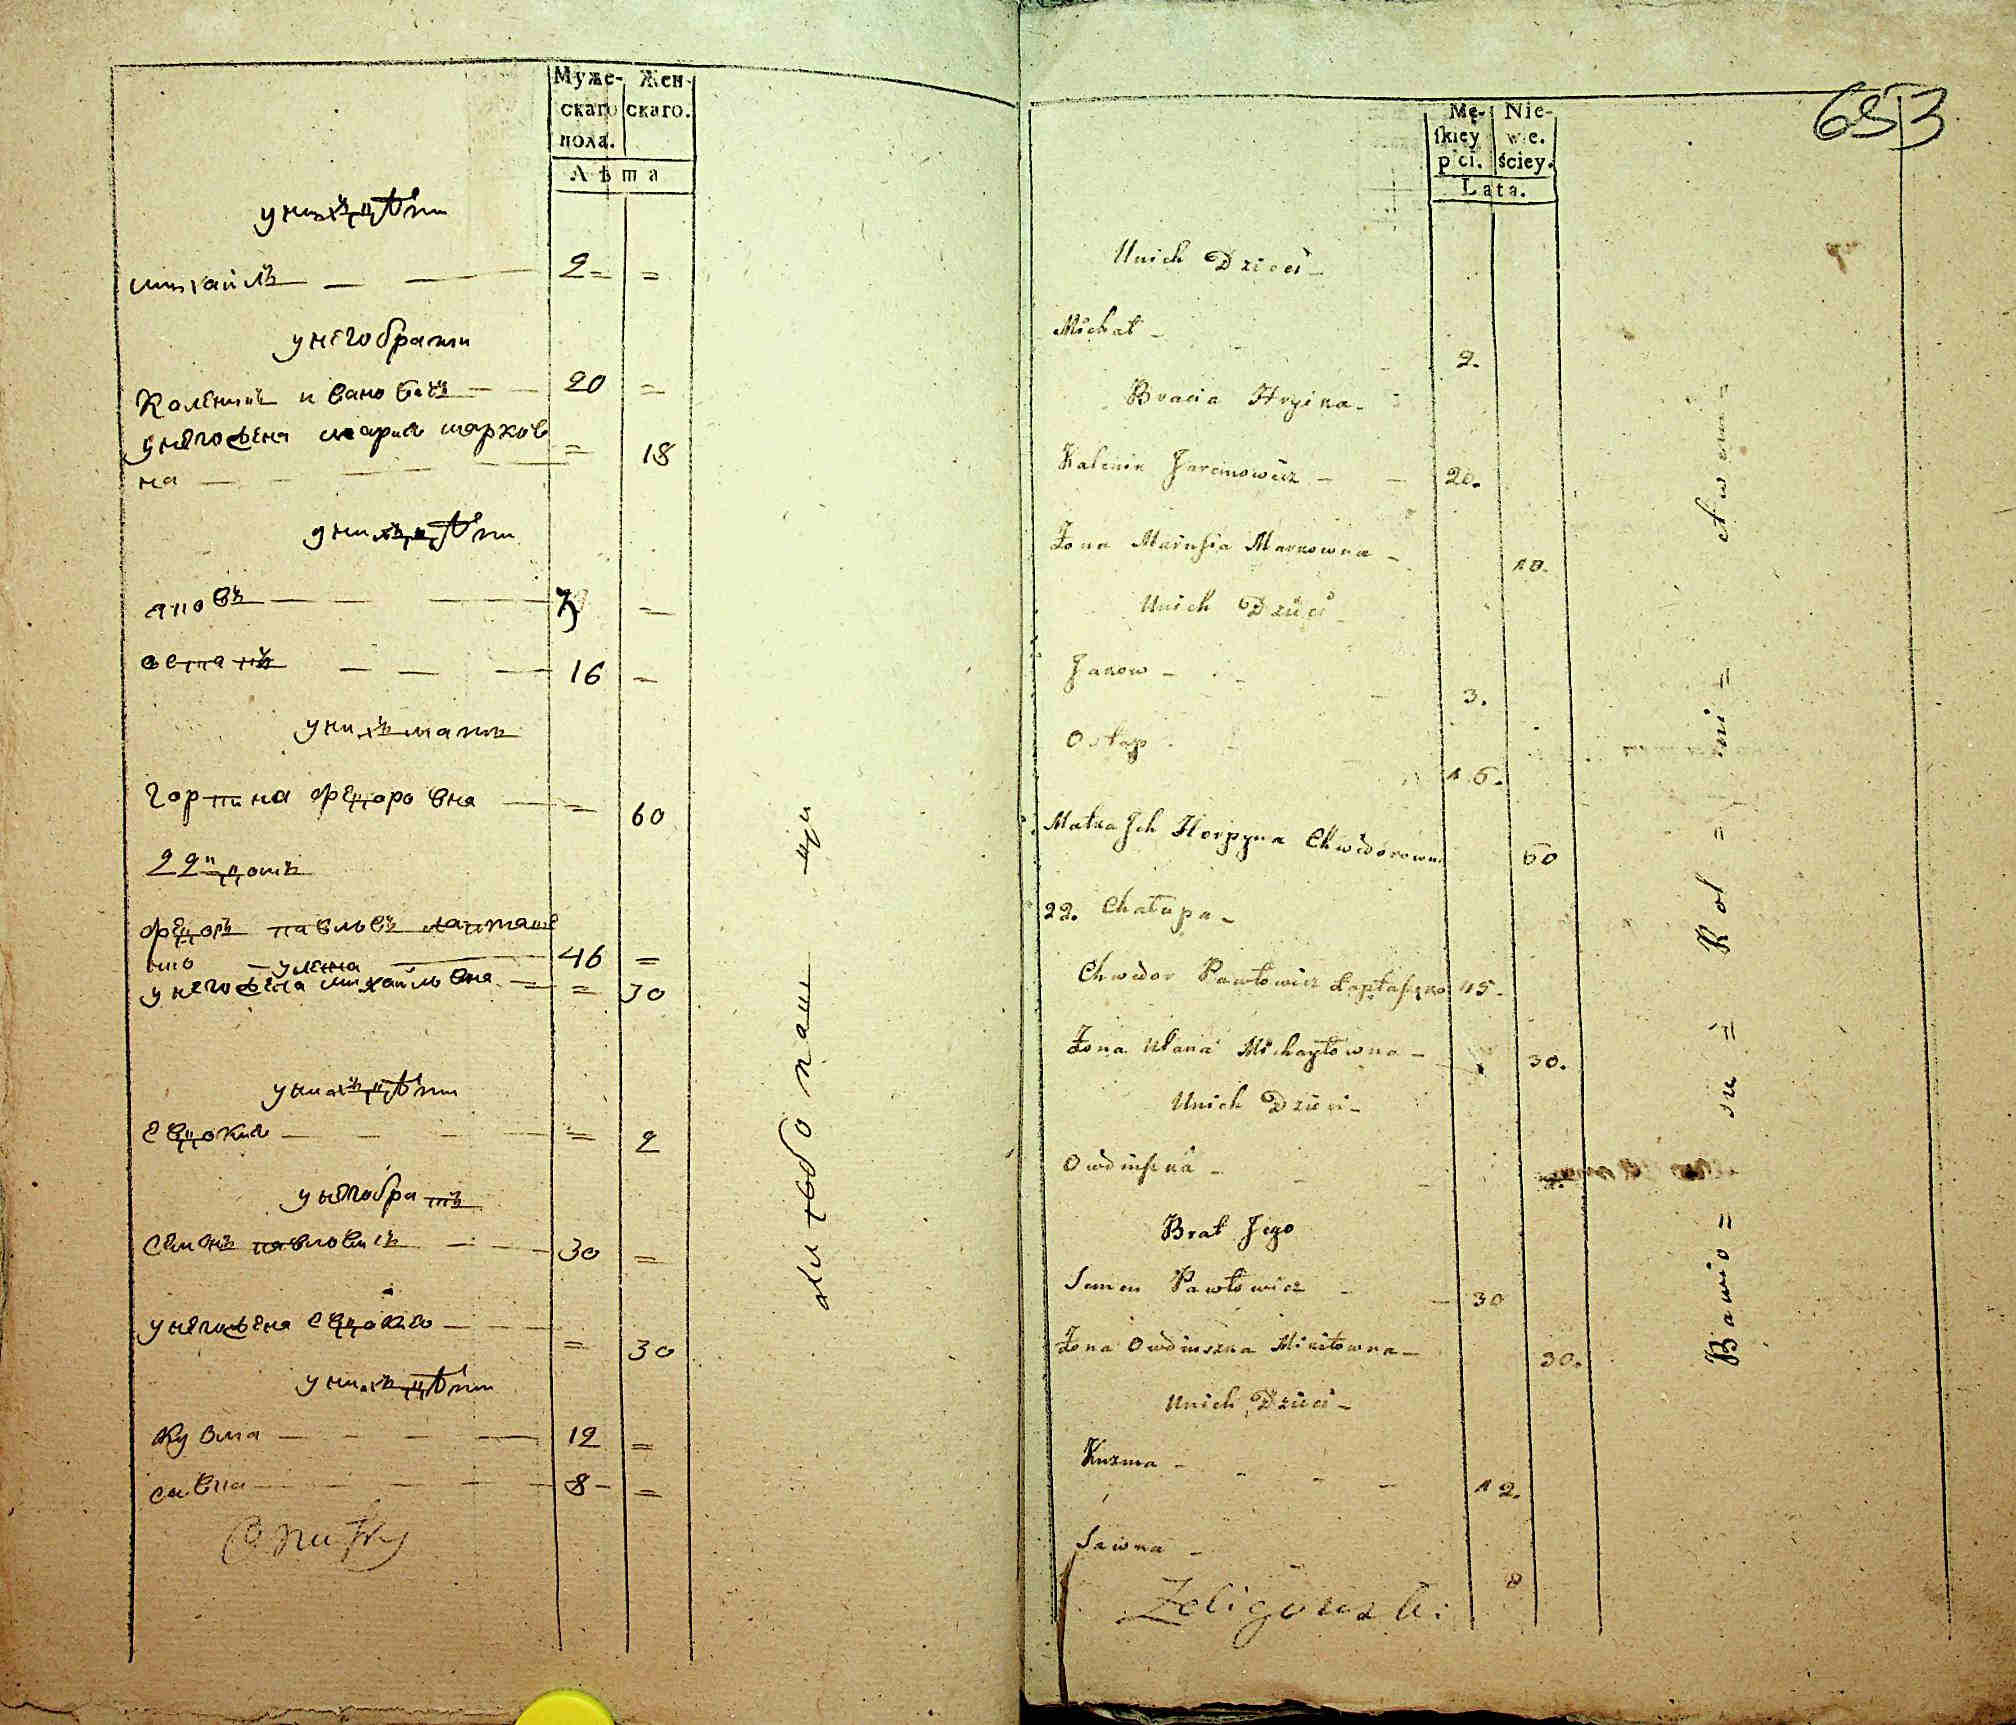 Муже-
скаго
пола.
Жен-
скаго.
Лѣта
у нихъ дѣти
михайлъ — — — 2 = =
у него брати
Каленикъ ивановичъ — — 20 =
у него жена мария марков
на — — — = 18
у нихъ дѣти
яковъ — — — 3 =
остапъ — — — 16 =
у нихъ мать
горпина федоровна — = 60
22й домъ
федоръ павловъ лапташе
нко 46 =
у него жена улена михайловна — = 30
у нихъ дѣти
Евдокия — — — = 2
у него братъ
семенъ павловичъ — — 30 =
у него жена евдокия — — = 30
у нихъ дѣти
кузма — — — — 12 =
савка — — — — 8 = =
653
Mę-
ſkiey
płci.
Nie-
wie-
ściey.
Lata.
Unich Dzieci —
Michał — 2.
Bracia Hryćka.
Kalenik Jwanowicz — — 20.
Żona Marusia Markowna — 18.
Unich Dzieci
Jakow — 3.
Ostap . 16.
Matka Jch Horpyna Chwedorowna 60
22. Chałupa —
Chwedor Pawłowicz Łaptaszenko 45.
Żona Ułana Michayłowna — 30.
Unich Dzieci —
Owdiuszka —
Brat Jego
Semen Pawłowicz — — 30
Żona Owdiuszka Mikitowna — 30.
Unich Dzieci —
Kuzma — — — — 12.
Sawka — — 8
Zeligowski:
Bawio = su = Kol = ni = ctwem =